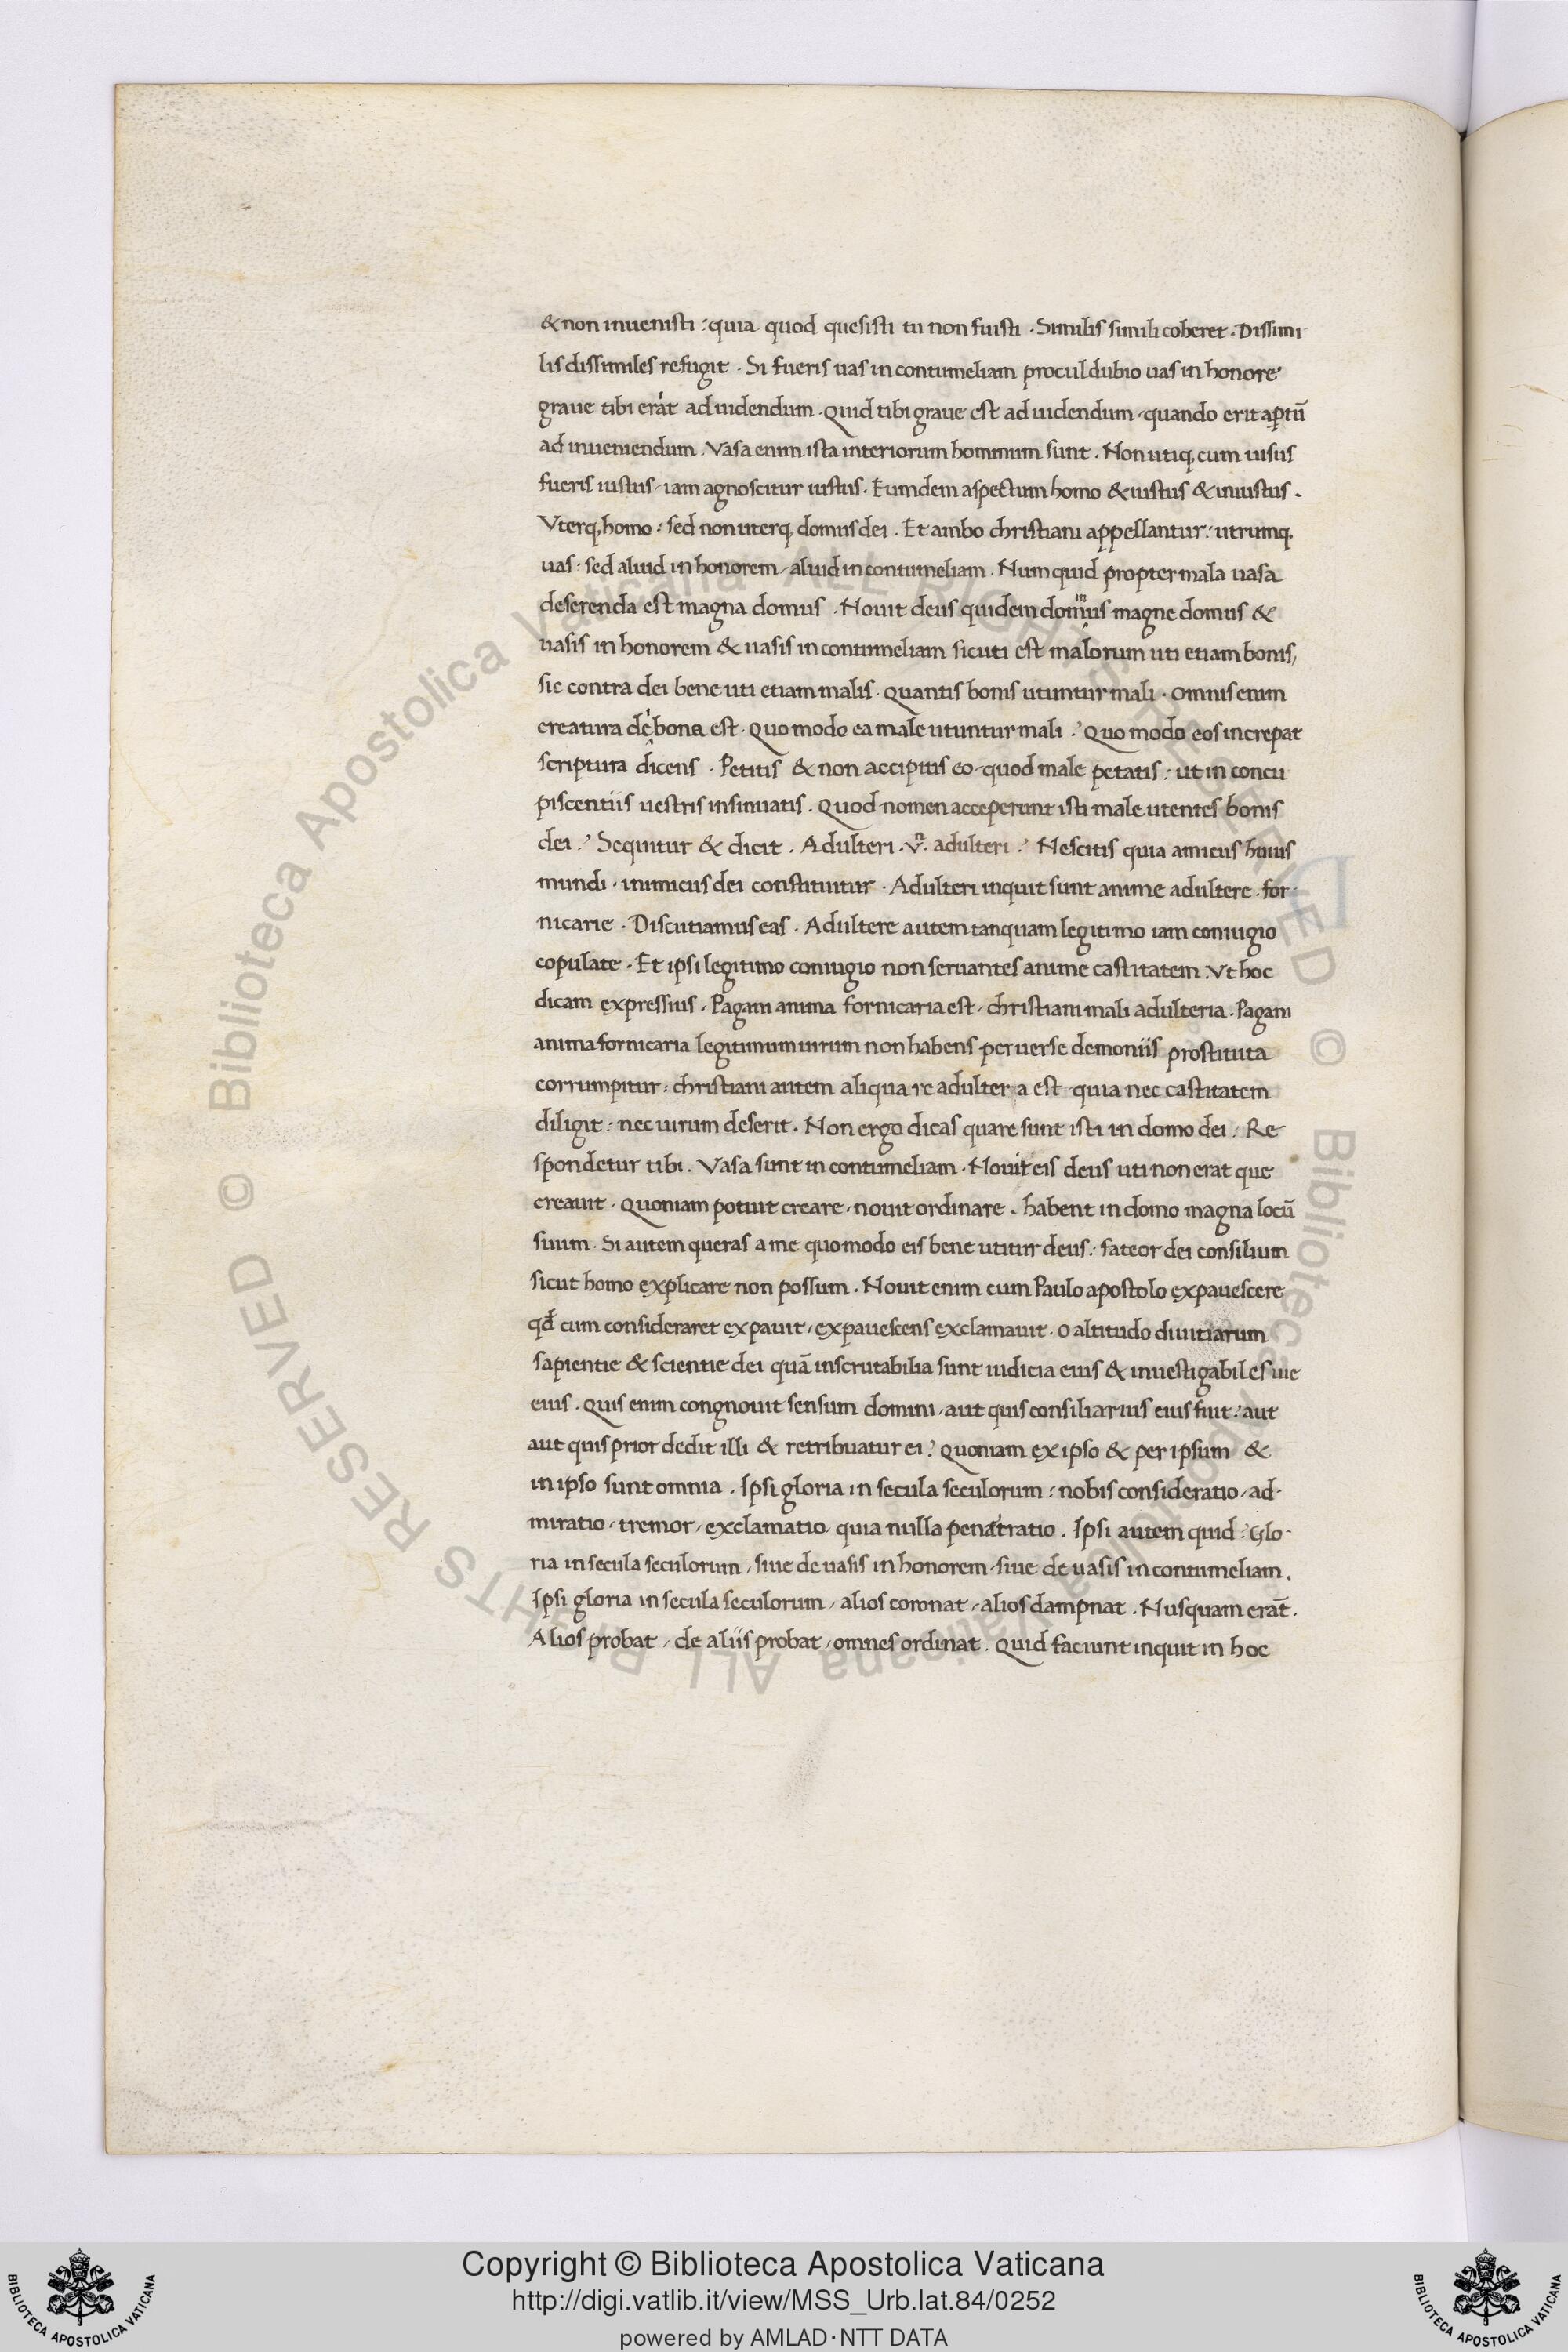 & non inuenisti : quia quod quesisti tu non fuisti . Similis simili coheret . Dissimi
lis dissimiles refugit . Si fueris uas in contumeliam procul dubio uas in honore
graue tibi erat ad uidendum . Quid tibi graue est ad uidendum , quando erit aptū
ad inueniendum . Vasa enim ista interiorum hominum sunt . Non utiq; cum uisus
fueris iustus , iam agnoscitur iustus . Eumdem aspectum homo & iustus & iniustus .
Vterq; homo : sed non uterq; domus dei . Et ambo christiani appellantur : utrumq;
uas : sed aliud in honorem , aliud in contumeliam . Num quid propter mala uasa
deserenda est magna domus . Nouit deus quidem dominus magne domus &
uasis in honorem & uasis in contumeliam sicuti est malorum uti etiam bonis ,
sic contra dei bene uti etiam malis . Quantis bonis utuntur mali . Omnis enim
creatura dei bona est . Quo modo ea male utuntur mali ? Quo modo eos increpat
scriptura dicens . Petitis & non accipitis eo , quod male petatis : ut in concu
piscentiis uestris insinuatis . Quod nomen acceperunt isti male utentes bonis
dei ? Sequitur & dicit . Adulteri . adulteri ? Nescitis quia amicus huius
mundi . inimicus dei constituitur . Adulteri inquit sunt anime adultere . for-
nicarie . Discutiamus eas . Adultere autem tanquam legitimo iam coniugio
copulate . Et ipsi legitimo coniugio non seruantes anime castitatem . Vt hoc
dicam expressius . Pagani anima fornicaria est , christiani mali adulteria . Pagani
anima fornicaria legitimum uirum non habens peruerse demoniis prostituta
corrumpitur : christiani autem aliqua re adultera est quia nec castitatem
diligit : nec uirum deserit . Non ergo dicas quare sunt isti in domo dei : Re
spondetur tibi . Vasa sunt in contumeliam . Nouit eis deus uti non erat que
creauit . Quoniam potuit creare , nouit ordinare . habent in domo magna locū
suum . Si autem queras a me quomodo eis bene utitur deus : fateor dei consilium
sicut homo explicare non possum . Nouit enim cum Paulo apostolo expauescere
qd̄ cum consideraret expauit , expauescens exclamauit . O altitudo diuitiarum
sapientie & scientie dei quā inscrutabilia sunt iudicia eius & inuestigabiles uie
eius . Quis enim congnouit sensum domini , aut quis consiliarius eius fuit : aut
aut quis prior dedit illi & retribuatur ei ? Quoniam ex ipso & per ipsum &
in ipso sunt omnia . Ipsi gloria in secula seculorum : nobis consideratio , ad-
miratio , tremor , exclamatio , quia nulla penetratio . Ipsi autem quid ? Glo-
ria in secula seculorum , siue de uasis in honorem , siue de uasis in contumeliam .
Ipsi gloria in secula seculorum , alios coronat , alios dampnat . Nusquam erat̄ .
Alios probat , de aliis probat , omnes ordinat . Quid faciunt inquit in hoc
© Biblioteca Apostolica Vaticana ALL RIGHTS RESERVED © Biblioteca Apostolica Vaticana ALL RIGHTS RESERVED
Copyright © Biblioteca Apostolica Vaticana
http://digi.vatlib.it/view/MSS_Urb.lat.84/0252
powered by AMLAD·NTT DATA
BIBLIOTECA APOSTOLICA VATICANA
BIBLIOTECA APOSTOLICA VATICANA